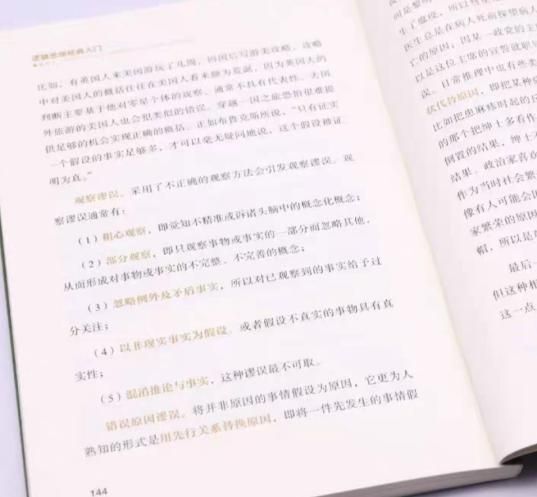 逻辑思维经典入门
比如，有英国人来美国游玩了几周，回国后写游美攻略，攻略
中对美国人的概括往往在美国人看来颇为荒诞，因为英国人的
判断主要基于他对零星个体的观察，通常不具有代表性。去国
外旅游的美国人也会犯类似的错误，穿越一国之旅恐怕很难提
供足够的机会实现正确的概括。正如布鲁克斯所说，“只有证实
一个假设的事实足够多，才可以毫无疑问地说，这个假设被证
明为真。”
观察谬误。采用了不正确的观察方法会引发观察谬误。观
察谬误通常有：
（1）粗心观察，即觉知不精准或诉诸头脑中的概念化概念；
（2）部分观察，即只观察事物或事实的一部分而忽略其他，
从而形成对事物或事实的不完整、不完善的概念；
（3）忽略例外及矛盾事实，所以对已观察到的事实给予过
分关注；
（4）以非现实事实为假设，或者假设不真实的事物具有真
实性；
（5）混淆推论与事实，这种谬误最不可取。
错误原因谬误。将并非原因的事情假设为原因，它更为人
熟知的形式是用先行关系替换原因，即将一件先发生的事情假
144
生了瘟疫，所以彗星
医生总是在病人死前探望病人
亡的原因；因某一政党
以是这位主席的宣誓就职
误。日常推理中也有些类
状代替原因，即把某种
比如把患麻疹时起的
的那个把绅士多有作
倒置的结果，绅士不
结果。政治家喜
作为当时社会繁
像有人可能会
家繁荣的原因
帽，所以是
最后一
但这种相
这一点